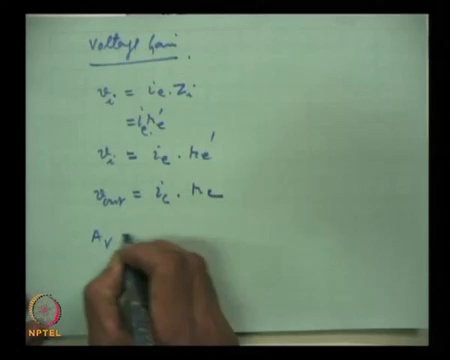 Voltage Gain.
v_i = i_e . Z_i
= i_e r_e'
v_i = i_e . r_e'
v_out = i_c . r_c
A_v
NPTEL